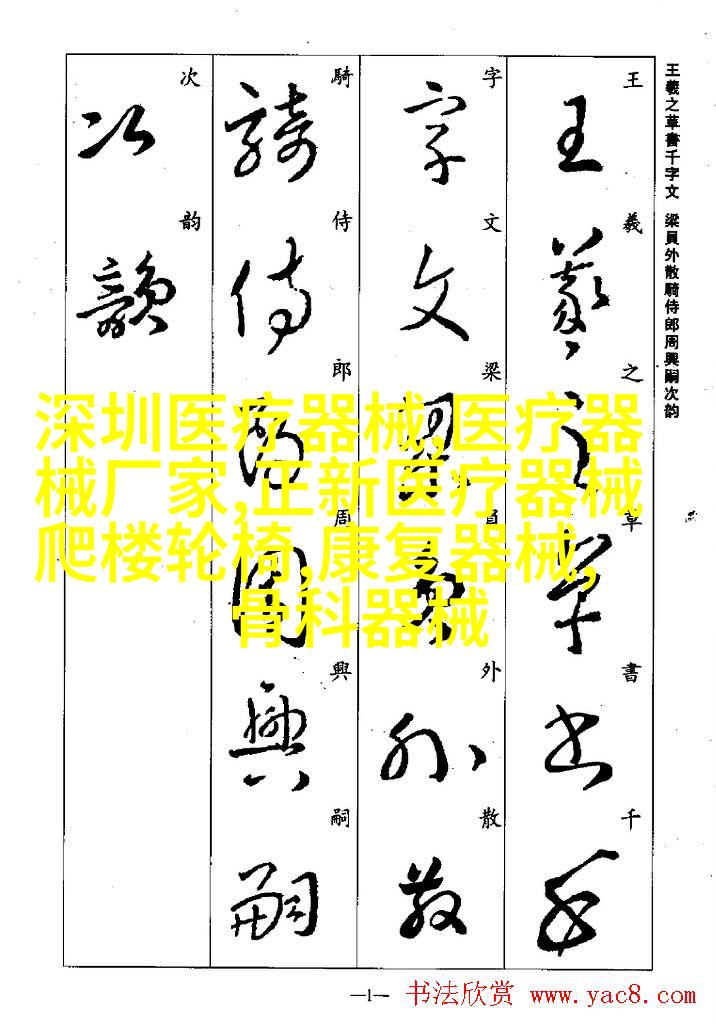 王羲之草書千字文 梁員外散騎侍郎周興嗣次韵
王羲之草書千
字文梁員外散
騎侍郎周興嗣
次韵
深圳医疗器械,医疗器
械厂家,正新医疗器械,
爬楼轮椅,康复器械,
骨科器械
—1—
书法欣赏 www.yac8.com